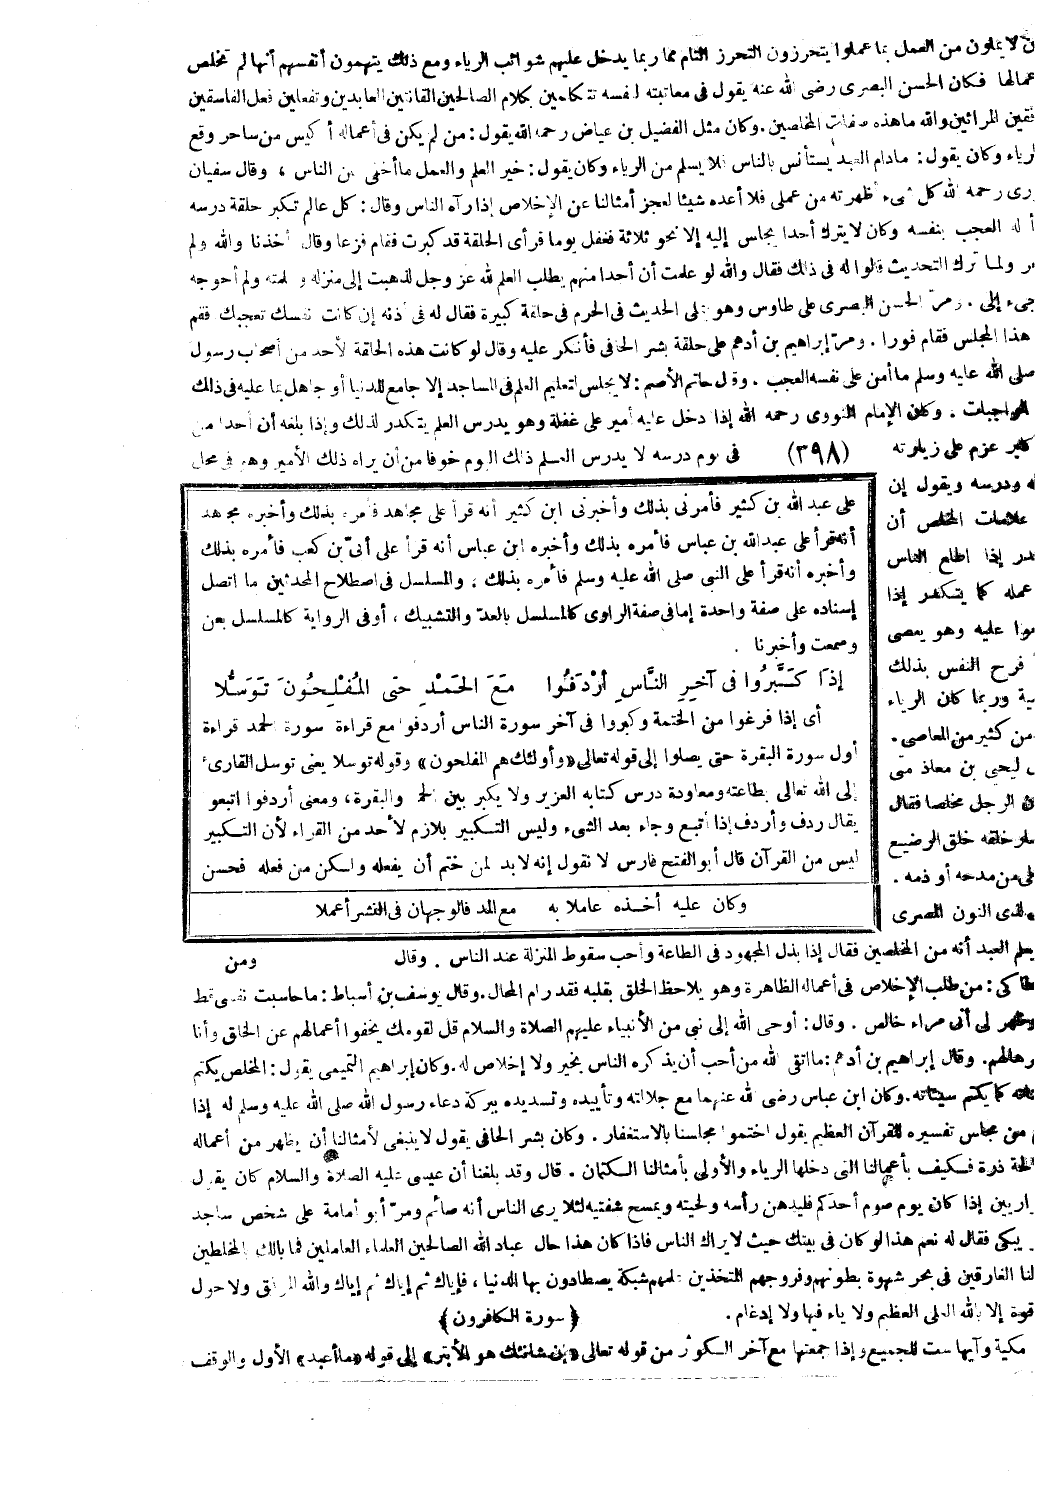 لا يملون من العمل بما عملوا يتحرزون التحرز التام مما ربما يدخل عليهم شوائب الرياء ومع ذلك يتهمون أنفسهم أنها لم تخلص
فكان الحسن البصرى رضى الله عنه يقول فى معاتبته لنفسه تتكلمين بكلام الصالحين القانتين العابدين وتفعلين فعل الفاسقين
المرائين والله ما هذه صفات المخلصين . وكان مثل الفضيل بن عياض رحمه الله يقول : من لم يكن فى أعماله أكيس من ساحر وقع
وكان يقول : مادام العبد يستأنس بالناس فلا يسلم من الرياء وكان يقول : خير العلم والعمل ما أخفى عن الناس ، وقال سفيان
رحمه الله كل شىء أظهرته من عملى فلا أعده شيئا لعجز أمثالنا عن الإخلاص إذا رآه الناس وقال : كل عالم تكبر حلقة درسه
له العجب بنفسه وكان لا يترك أحدا يجلس إليه إلا نحو ثلاثة فغفل يوما فرأى الحلقة قد كبرت فقام فزعا وقال أخذنا والله ولم
ولما ترك التحديث قالوا له فى ذلك فقال والله لو علمت أن أحدا منهم يطلب العلم لله عز وجل لذهبت إلى منزله وعلمته ولم أحوجه
إلى . ومرّ الحسن البصرى على طاوس وهو يملى الحديث فى الحرم فى حلقة كبيرة فقال له فى أذنه إن كانت نفسك تعجبك فقم
هذا المجلس فقام فورا . ومرّ إبراهيم بن أدهم على حلقة بشر الحافى فأنكر عليه وقال لو كانت هذه الحلقة لأحد من أصحاب رسول
صلى الله عليه وسلم ما أمن على نفسه العجب . وقال حاتم الأصم : لا يجلس لتعليم العلم فى المساجد إلا جامع للدنيا أو جاهل بما عليه فى ذلك
الواجبات . وكان الإمام النووى رحمه الله إذا دخل عليه أمير على غفلة وهو يدرس العلم يتكدر لذلك وإذا بلغه أن أحدا من
عزم على زيارته (٣٩٨) فى يوم درسه لا يدرس العلم ذلك اليوم خوفا من أن يراه ذلك الأمير وهو فى محل
ودرسه ويقول إن
علامات المخلص أن
إذا اطلع الناس
عمله كما يتكدر إذا
عليه وهو يعصى
فرح النفس بذلك
وربما كان الرياء
من كثير من المعاصى .
ليحيى بن معاذ متى
الرجل مخلصا فقال
خلقه خلق الرضيع
من مدحه أو ذمه .
لذى النون المصرى
على عبد الله بن كثير فأمرنى بذلك وأخبرنى ابن كثير أنه قرأ على مجاهد فأمره بذلك وأخبره مجاهد
أنه قرأ على عبدالله بن عباس فأمره بذلك وأخبره ابن عباس أنه قرأ على أبىّ بن كعب فأمره بذلك
وأخبره أنه قرأ على النبى صلى الله عليه وسلم فأمره بذلك ، والمسلسل فى اصطلاح المحدثين ما اتصل
إسناده على صفة واحدة إما فى صفة الراوى كالمسلسل بالعدّ والتشبيك ، أو فى الرواية كالمسلسل بعن
وسمعت وأخبرنا .
إِذَا كَبَّرُوا فى آخِرِ النَّاسِ أَرْدَفُوا مَعَ الحَمْدِ حتى المُفْلِحُونَ تَوَسُّلَا
أى إذا فرغوا من الختمة وكبروا فى آخر سورة الناس أردفوا مع قراءة سورة الحمد قراءة
أول سورة البقرة حتى يصلوا إلى قوله تعالى «وأولئك هم المفلحون» وقوله توسلا يعنى توسل القارئ
إلى الله تعالى بطاعته ومعاودة درس كتابه العزيز ولا يكبر بين الحمد والبقرة، ومعنى أردفوا اتبعو
يقال ردف وأردف إذا أتبع وجاء بعد الشىء وليس التكبير بلازم لأحد من القراء لأن التكبير
ليس من القرآن قال أبو الفتح فارس لا نقول إنه لابد لمن ختم أن يفعله ولكن من فعله فحسن
وكان عليه أخذه عاملا به مع المد فالوجهان فى النشر أعملا
يعلم العبد أنه من المخلصين فقال إذا بذل المجهود فى الطاعة وأحب سقوط المنزلة عند الناس . وقال ومن
: من طلب الإخلاص فى أعماله الظاهرة وهو يلاحظ الخلق بقلبه فقد رام المحال . وقال يوسف بن أسباط : ما حاسبت نفسى قط
وظهر لى أنى مراء خالص . وقال : أوحى الله إلى نبى من الأنبياء عليهم الصلاة والسلام قل لقومك يخفوا أعمالهم عن الخلق وأنا
. وقال إبراهيم بن أدهم : ما اتقى الله من أحب أن يذكره الناس بخير ولا إخلاص له . وكان إبراهيم التميمى يقول : المخلص يكتم
كما يكتم سيئاته . وكان ابن عباس رضى الله عنهما مع جلالته وتأييده وتسديده ببركة دعاء رسول الله صلى الله عليه وسلم له إذا
من مجلس تفسيره للقرآن العظيم يقول اختموا مجلسنا بالاستغفار . وكان بشر الحافى يقول لا ينبغى لأمثالنا أن يظهر من أعماله
ذرة فكيف بأعمالنا التى دخلها الرياء والأولى بأمثالنا الكتمان . قال وقد بلغنا أن عيسى عليه الصلاة والسلام كان يقول
إذا كان يوم صوم أحدكم فليدهن رأسه ولحيته ويمسح شفتيه لئلا يرى الناس أنه صائم ومرّ أبو أمامة على شخص ساجد
يبكى فقال له نعم هذا لو كان فى بيتك حيث لا يراك الناس فاذا كان هذا حال عباد الله الصالحين العلماء العاملين فما بالك بالمخلطين
الغارقين فى بحر شهوة بطونهم وفروجهم المتخذين علمهم شبكة يصطادون بها الدنيا ، فإياك ثم إياك ثم إياك والله الموفق ولا حول
قوة إلا بالله العلى العظيم ولا ياء فيها ولا إدغام . ﴿ سورة الكافرون ﴾
مكية وآيها ست للجميع وإذا جمعتها مع آخر الكوثر من قوله تعالى «إن شانئك هو الأبتر» إلى قوله «ما أعبد» الأول والوقف